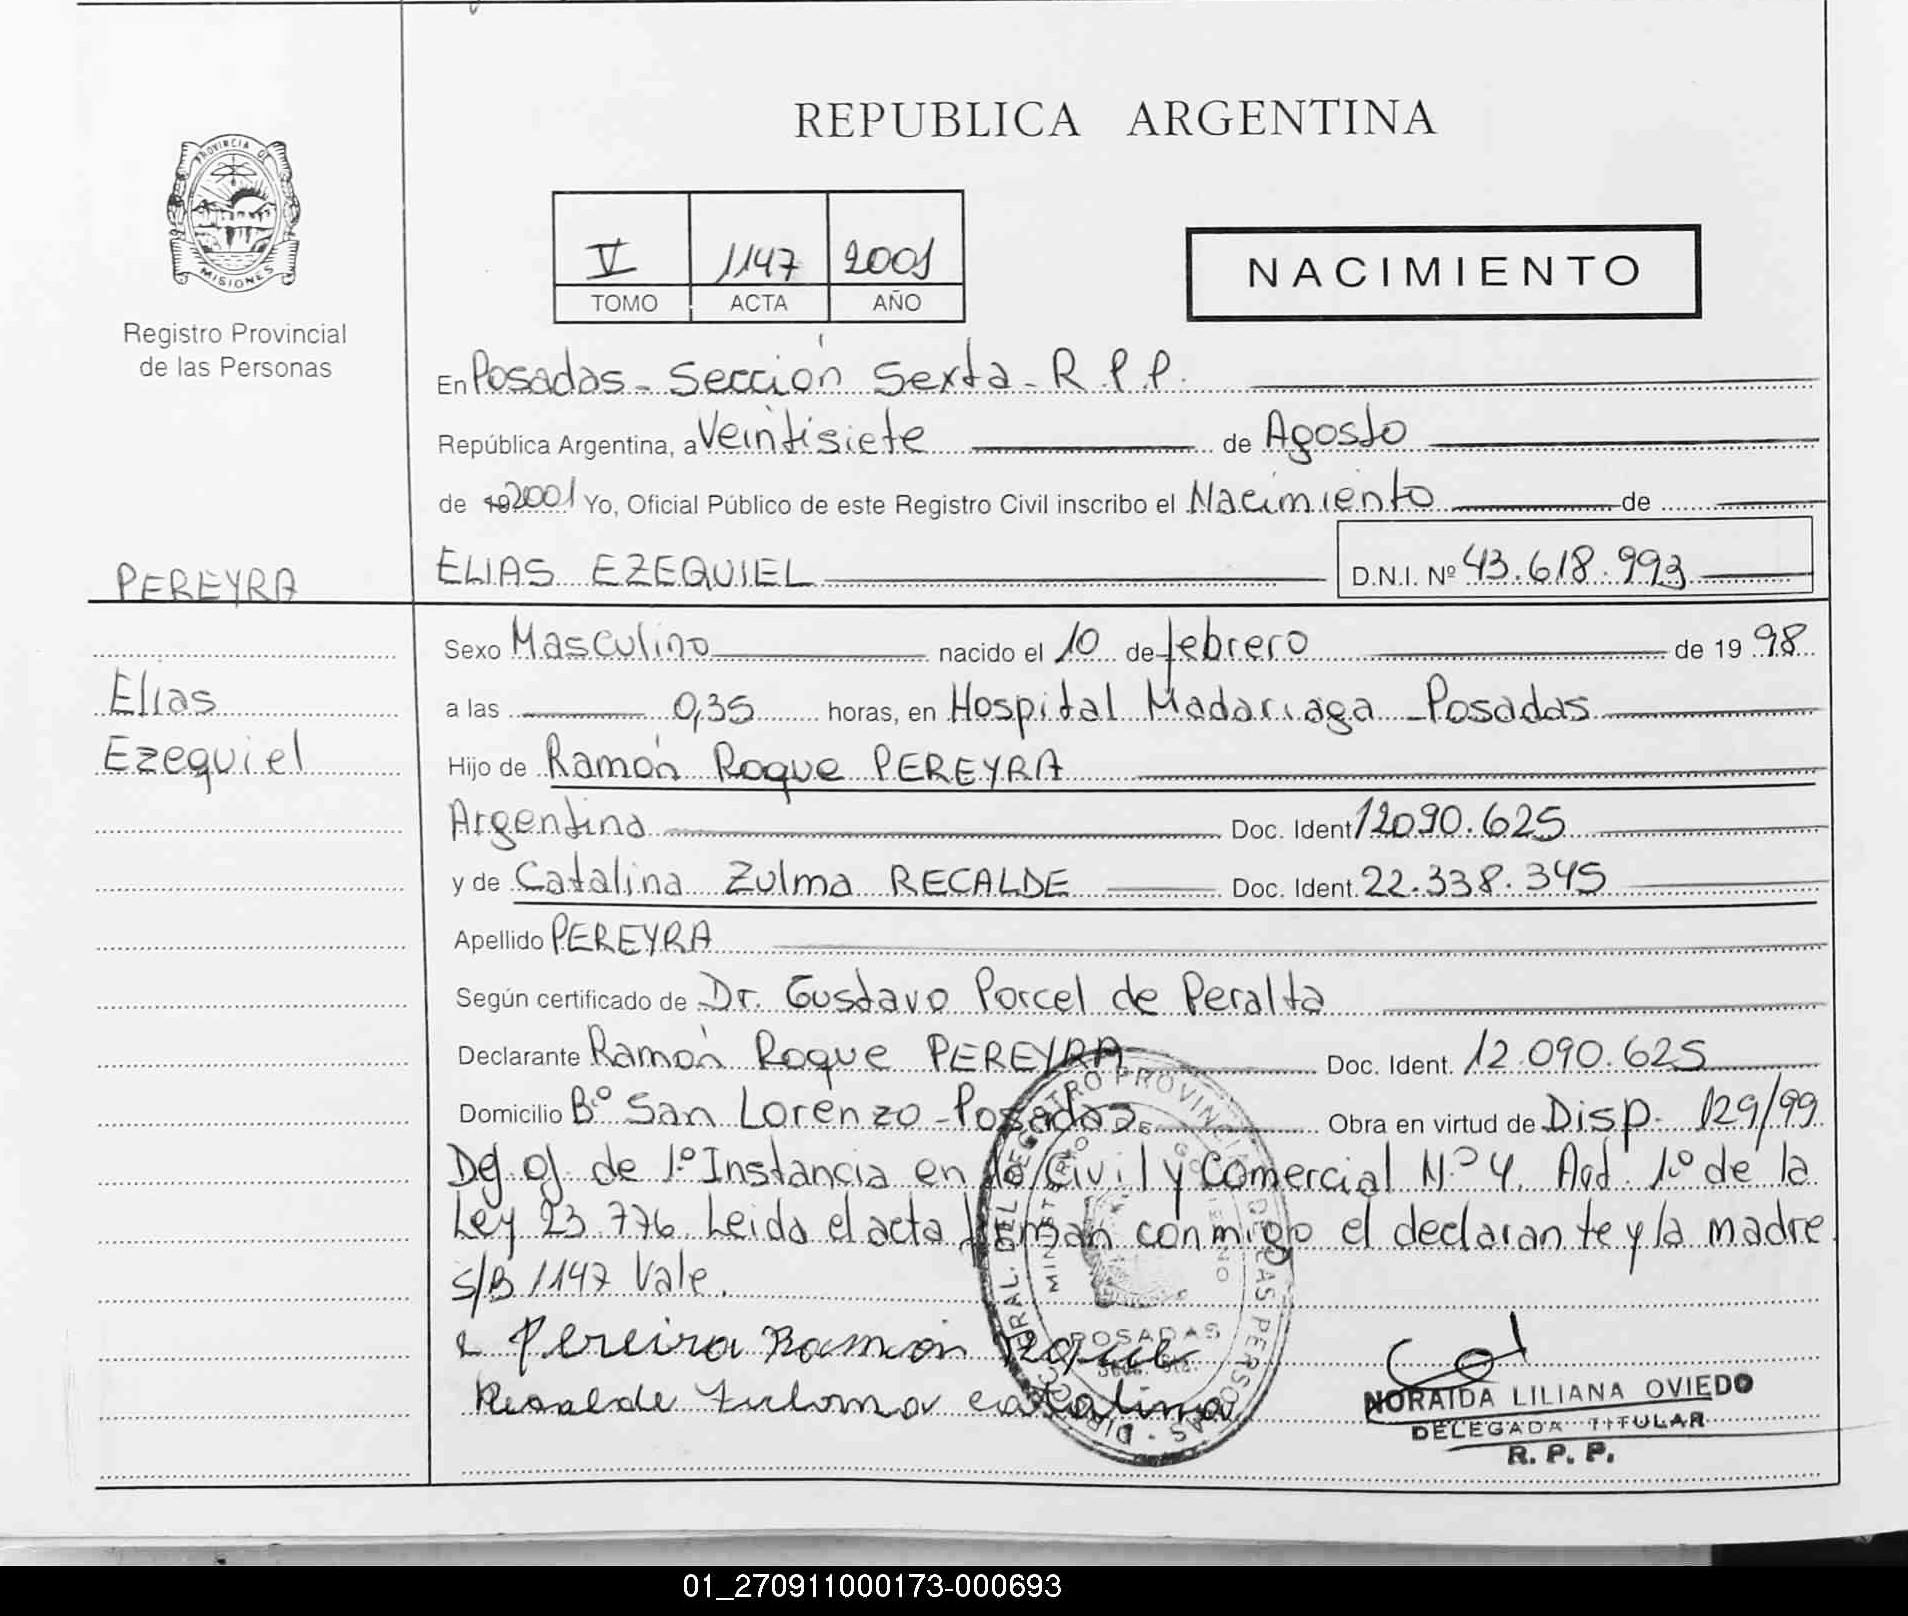 REPUBLICA ARGENTINA
PROVINCIA DE
MISIONES
Registro Provincial
de las Personas
V 1147 2001
TOMO ACTA AÑO
NACIMIENTO
En Posadas - Sección Sexta - R.P.P.
República Argentina, a Veintisiete de Agosto
de 19 2001 Yo, Oficial Público de este Registro Civil inscribo el Nacimiento de
PEREYRA
ELIAS EZEQUIEL D.N.I. Nº 43.618.993
Sexo Masculino nacido el 10 de febrero de 19 98
Elias
a las 0,35 horas, en Hospital Madariaga - Posadas
Ezequiel
Hijo de Ramón Roque PEREYRA
Argentina Doc. Ident 12090.625
y de Catalina Zulma RECALDE Doc. Ident. 22.338.345
Apellido PEREYRA
Según certificado de Dr. Gustavo Porcel de Peralta
Declarante Ramón Roque PEREYRA Doc. Ident. 12.090.625
Domicilio Bº San Lorenzo - Posadas Obra en virtud de Disp. 129/99
Def. Of. de 1º Instancia en lo Civil y Comercial Nº 4. Art. 1º de la
Ley 23.776. Leida el acta firman conmigo el declarante y la madre
S/B 1147 Vale.
Pereira Ramon Roque
Recalde Zulma catalina
POSADAS
NORAIDA LILIANA OVIEDO
DELEGADA TITULAR
R. P. P.
01_270911000173-000693